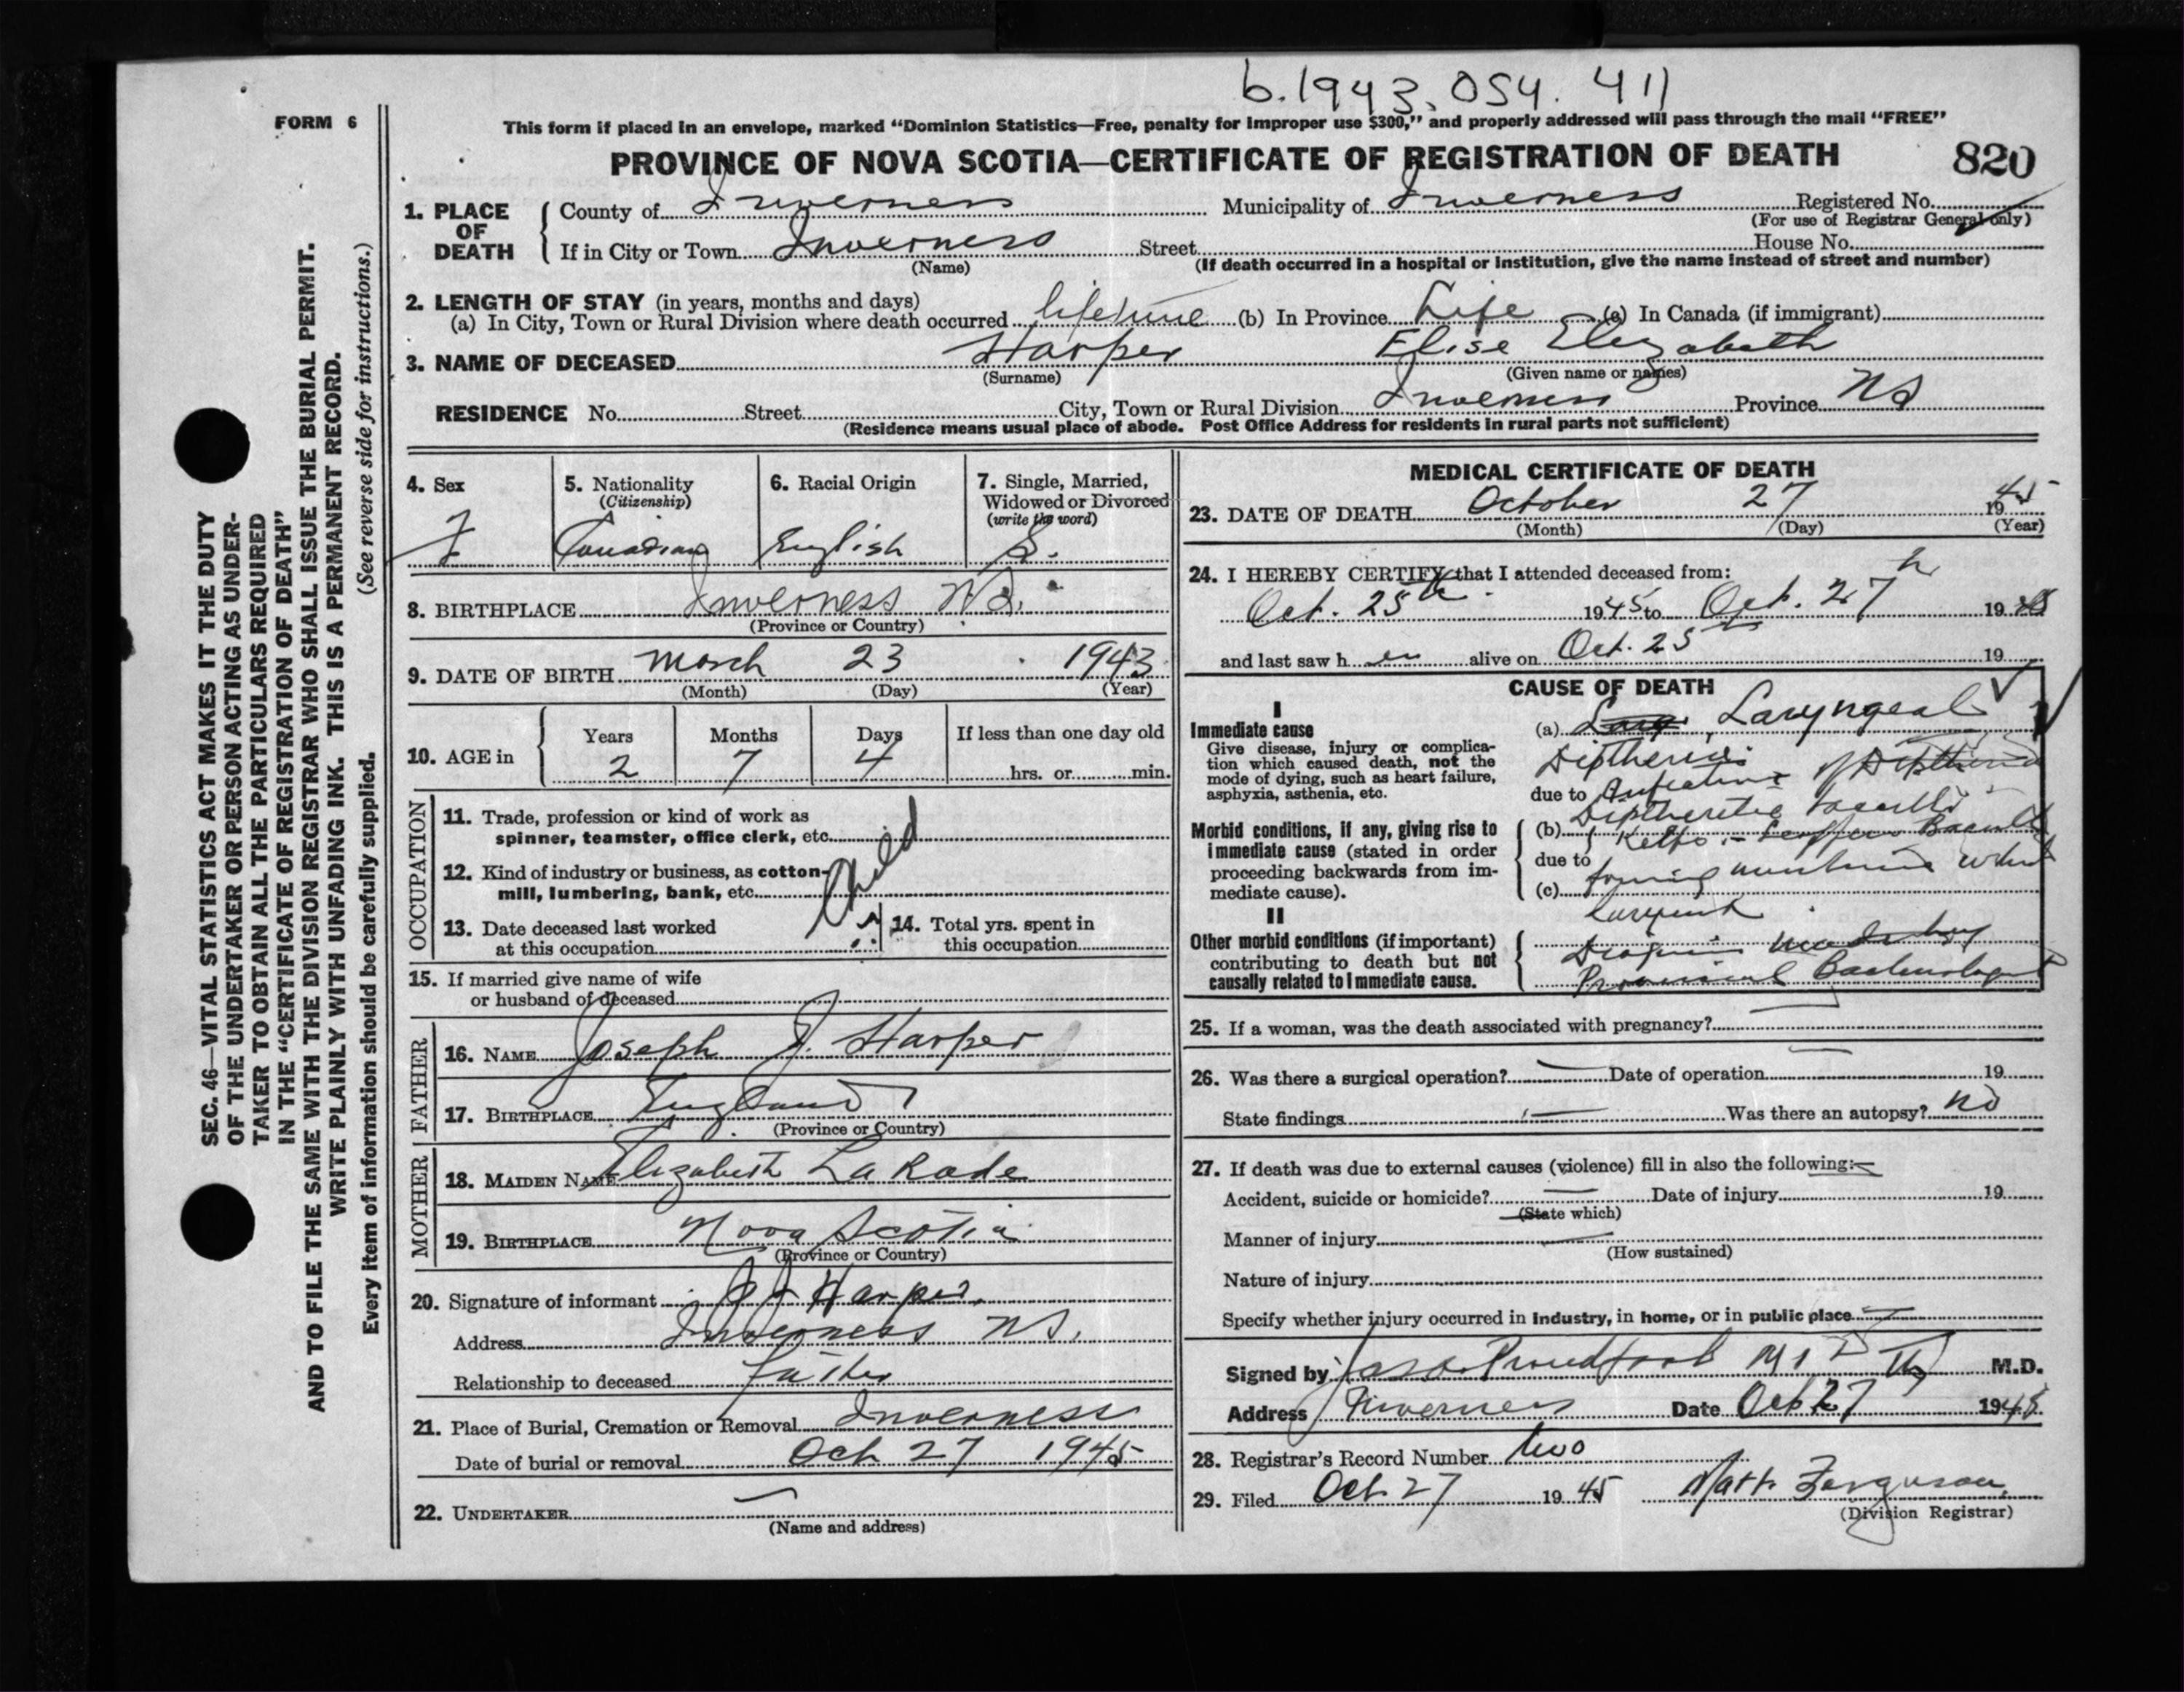 b. 1943. 054. 411
FORM 6
This form if placed in an envelope, marked “Dominion Statistics—Free, penalty for improper use $300,” and properly addressed will pass through the mail “FREE”
PROVINCE OF NOVA SCOTIA—CERTIFICATE OF REGISTRATION OF DEATH 820
SEC. 46—VITAL STATISTICS ACT MAKES IT THE DUTY
OF THE UNDERTAKER OR PERSON ACTING AS UNDER-
TAKER TO OBTAIN ALL THE PARTICULARS REQUIRED
IN THE “CERTIFICATE OF REGISTRATION OF DEATH”
AND TO FILE THE SAME WITH THE DIVISION REGISTRAR WHO SHALL ISSUE THE BURIAL PERMIT.
WRITE PLAINLY WITH UNFADING INK. THIS IS A PERMANENT RECORD.
(See reverse side for instructions.)
Every item of information should be carefully supplied.
1. PLACE OF DEATH
County of Inverness Municipality of Inverness Registered No.
(For use of Registrar General only)
If in City or Town Inverness Street House No.
(Name) (If death occurred in a hospital or institution, give the name instead of street and number)
2. LENGTH OF STAY (in years, months and days)
(a) In City, Town or Rural Division where death occurred lifetime (b) In Province Life (c) In Canada (if immigrant)
3. NAME OF DECEASED Harper Elise Elizabeth
(Surname) (Given name or names)
RESIDENCE No. Street City, Town or Rural Division Inverness Province NS
(Residence means usual place of abode. Post Office Address for residents in rural parts not sufficient)
4. Sex
F
5. Nationality
(Citizenship)
Canadian
6. Racial Origin
English
7. Single, Married,
Widowed or Divorced
(write the word)
S.
8. BIRTHPLACE Inverness N.S.
(Province or Country)
9. DATE OF BIRTH March 23 1943
(Month) (Day) (Year)
10. AGE in
Years Months Days If less than one day old
2 7 4 hrs. or min.
OCCUPATION
11. Trade, profession or kind of work as
spinner, teamster, office clerk, etc.
Child
12. Kind of industry or business, as cotton-
mill, lumbering, bank, etc.
13. Date deceased last worked
at this occupation
14. Total yrs. spent in
this occupation
15. If married give name of wife
or husband of deceased
FATHER
16. NAME Joseph J. Harper
17. BIRTHPLACE England
(Province or Country)
MOTHER
18. MAIDEN NAME Elizabeth La Rade
19. BIRTHPLACE Nova Scotia
(Province or Country)
20. Signature of informant J J Harper
Address Inverness NS.
Relationship to deceased Father
21. Place of Burial, Cremation or Removal Inverness
Date of burial or removal Oct 27 1945
22. UNDERTAKER
(Name and address)
MEDICAL CERTIFICATE OF DEATH
23. DATE OF DEATH October 27 1945
(Month) (Day) (Year)
24. I HEREBY CERTIFY that I attended deceased from:
Oct. 25th 1945 to Oct. 27th 1945
and last saw her alive on Oct. 25th 19
CAUSE OF DEATH
I
Immediate cause
Give disease, injury or complica-
tion which caused death, not the
mode of dying, such as heart failure,
asphyxia, asthenia, etc.
(a) Laryngeal
Diptheria
due to
Diptheretic bacilli
Morbid conditions, if any, giving rise to
immediate cause (stated in order
proceeding backwards from im-
mediate cause).
(b)
due to
(c)
II
Other morbid conditions (if important)
contributing to death but not
causally related to immediate cause.
Diagnosis made by
Provincial Bacteriologist
25. If a woman, was the death associated with pregnancy?
26. Was there a surgical operation? — Date of operation 19
State findings — Was there an autopsy? no
27. If death was due to external causes (violence) fill in also the following:
Accident, suicide or homicide? — Date of injury 19
(State which)
Manner of injury
(How sustained)
Nature of injury
Specify whether injury occurred in industry, in home, or in public place
Signed by Proudfoot M.D. M.D.
Address Inverness Date Oct 27 1945
28. Registrar's Record Number two
29. Filed Oct 27 1945 Matt. Ferguson
(Division Registrar)